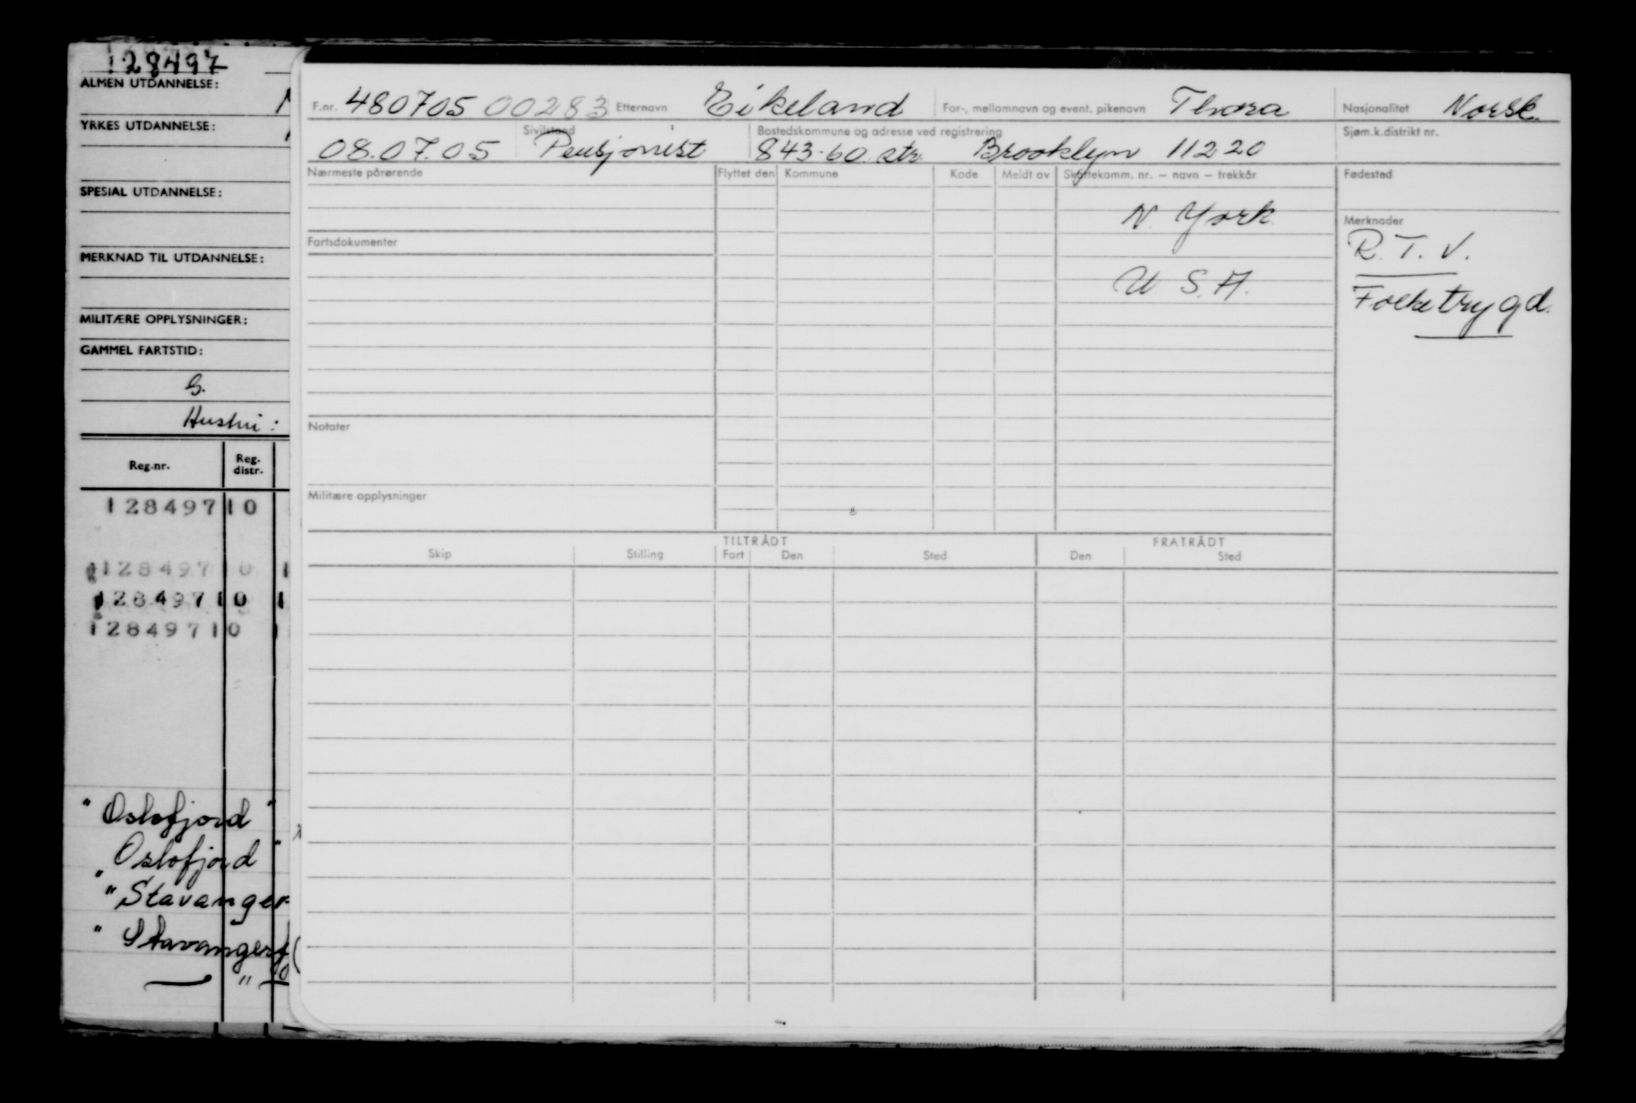 128497
ALMEN UTDANNELSE:
YRKES UTDANNELSE:
SPESIAL UTDANNELSE:
MERKNAD TIL UTDANNELSE:
MILITÆRE OPPLYSNINGER:
GAMMEL FARTSTID:
G.
Hustru :
Reg.nr. Reg. distr.
128497 10
128497 10 1
128497 10 1
128497 10 1
" Oslofjord "
" Oslofjord "
" Stavanger
" Stavangerfj
— " —
F.nr. 480705 00283 Etternavn Eikeland For-, mellomnavn og event. pikenavn Thora Nasjonalitet Norsk.
Sivilstand Bostedskommune og adresse ved registrering Sjøm.k.distrikt nr.
08.07.05 Pensjonist 843-60. str. Brooklyn 11220
Nærmeste pårørende Flyttet den Kommune Kode Meldt av Skattekomm. nr. – navn – trekkår Fødested
N. York
Merknader
Fartsdokumenter
R. T. V.
U S. A.
Folketrygd.
Notater
Militære opplysninger
TILTRÅDT FRATRÅDT
Skip Stilling Fart Den Sted Den Sted